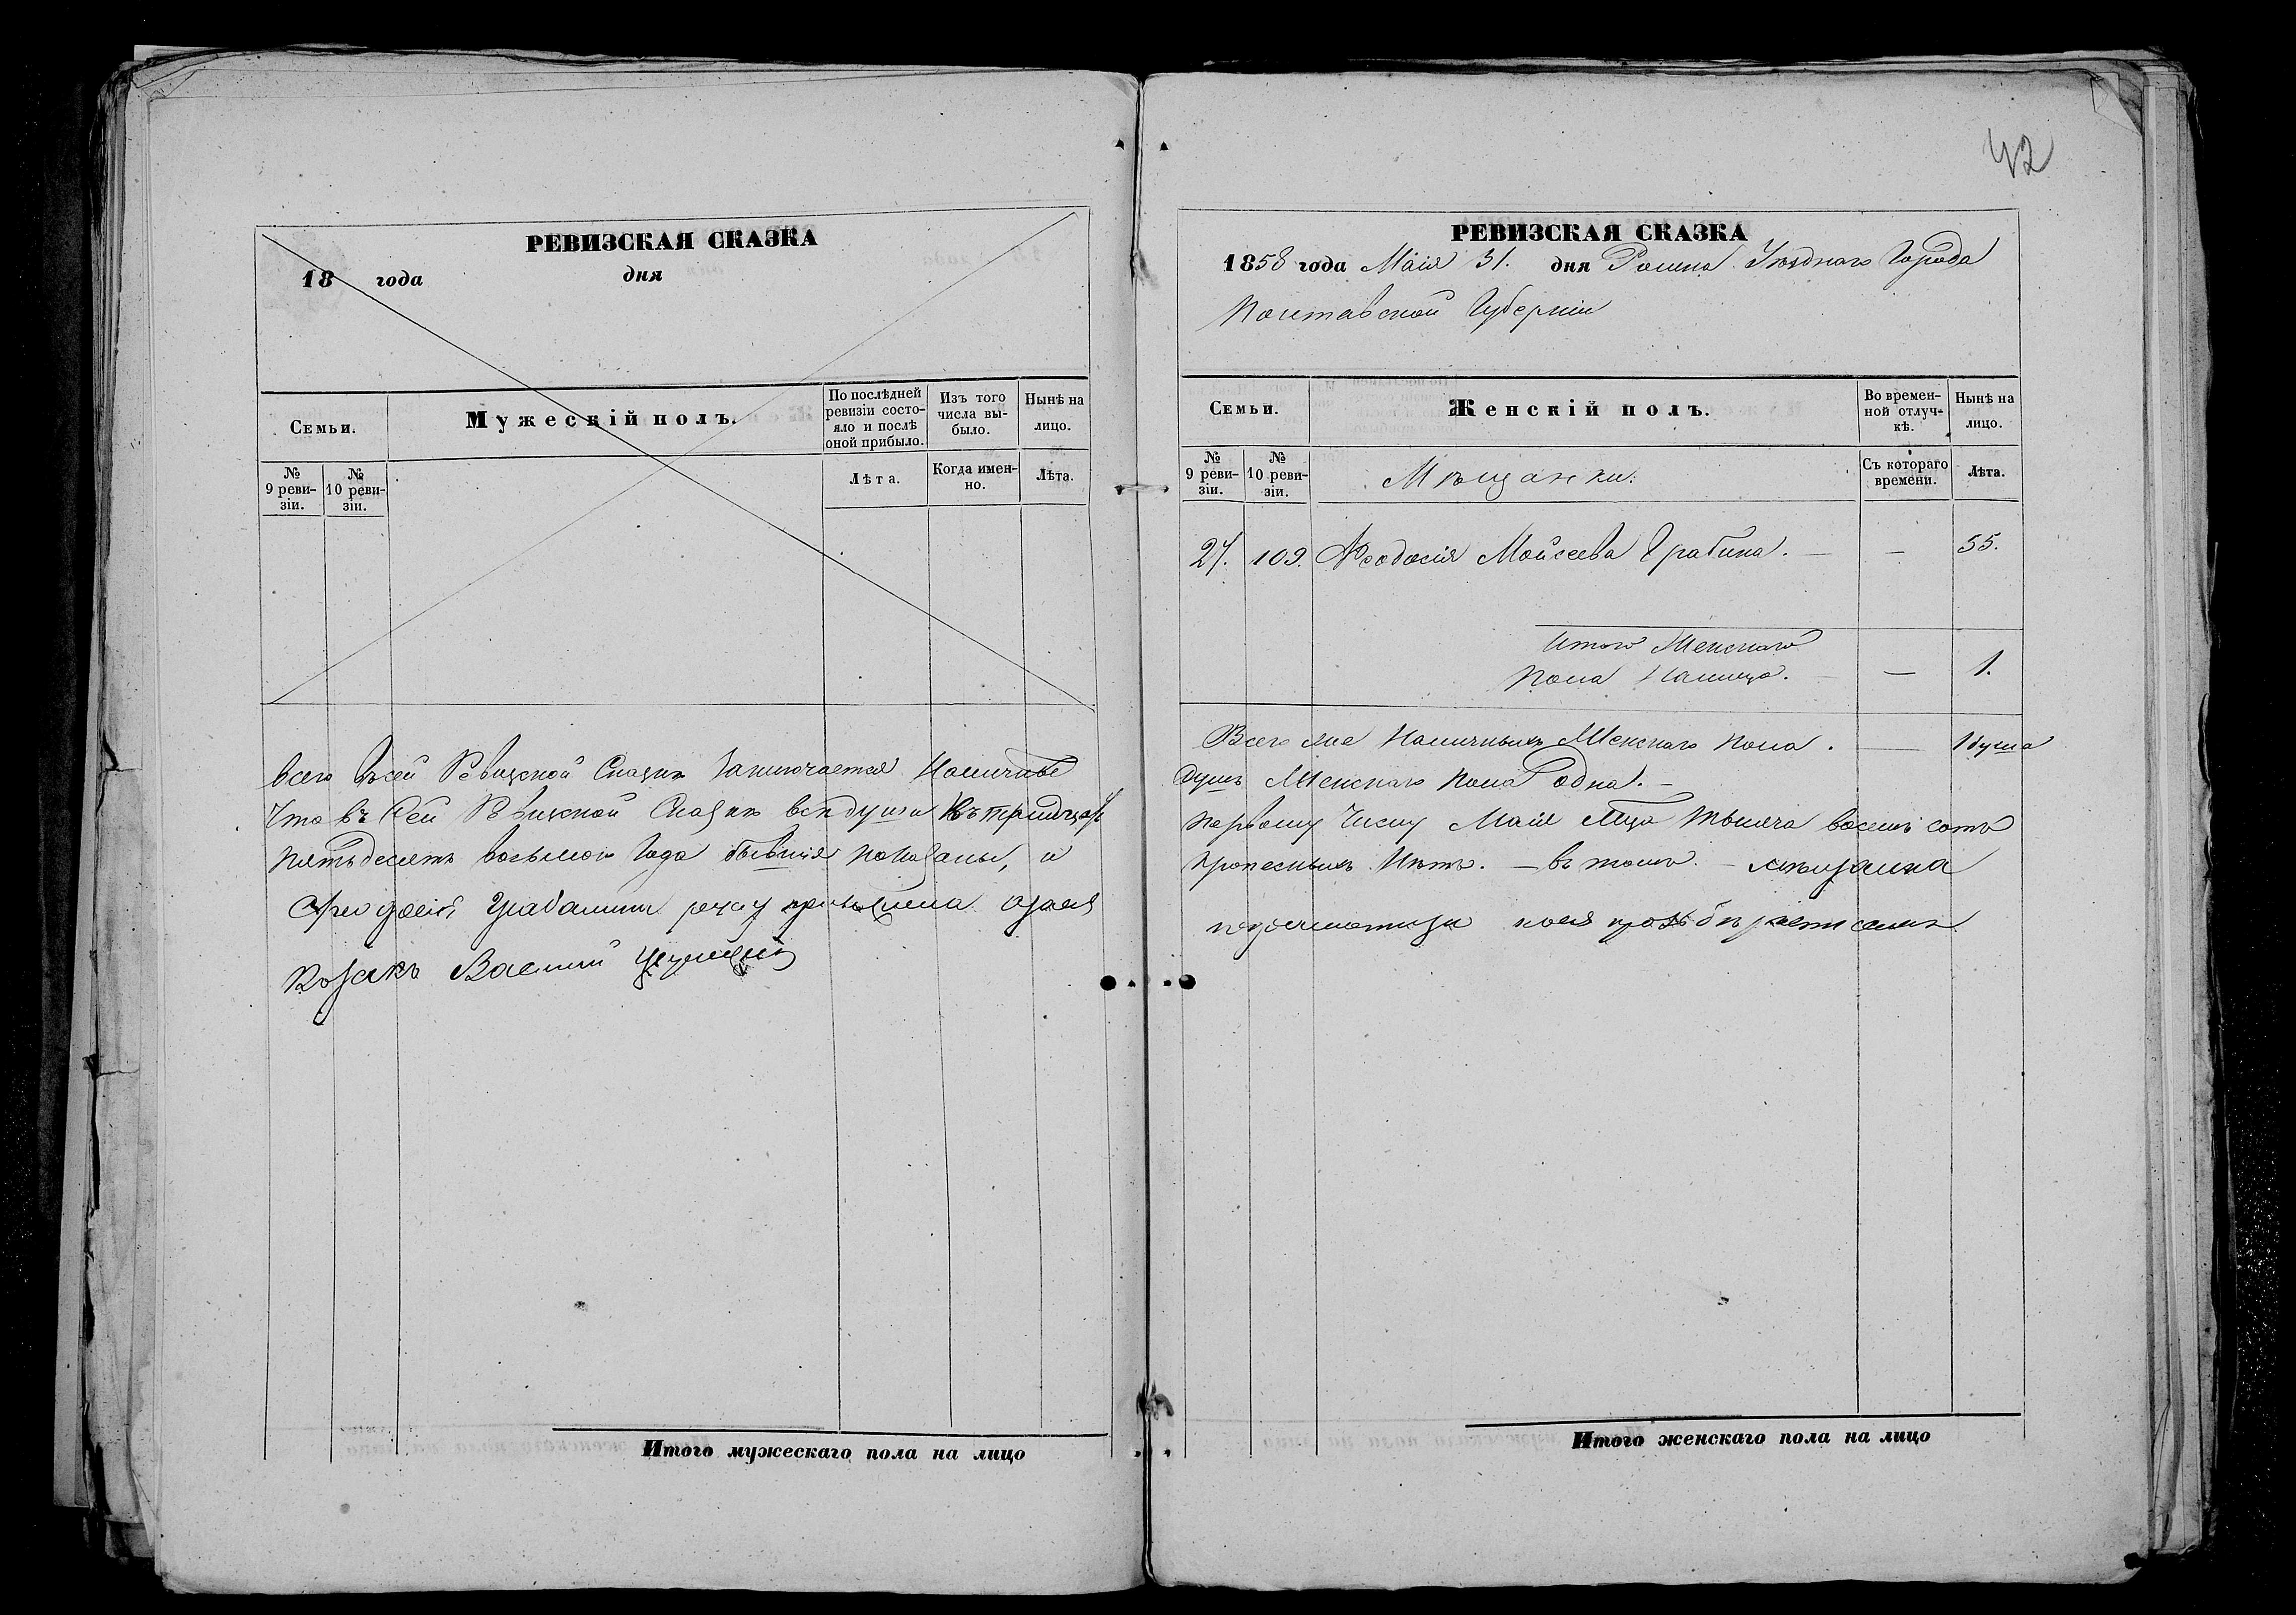 РЕВИЗСКАЯ СКАЗКА
18 года дня
Семьи.
Мужескій полъ.
По послѣдней ревизіи состояло и послѣ оной прибыло.
Изъ того числа выбыло.
Нынѣ на лицо.
№ 9 ревизіи.
№ 10 ревизіи.
Лѣта.
Когда именно.
Лѣта.
Всего въ сей Ревизской Сказкѣ заключается Наличныхъ
Что въ Сей Ревизской Сказкѣ всѣ души къ тридцать
пятьдесятъ восьмого Года бывшія показаны, и
руку
Козакъ Василий
Итого мужескаго пола на лицо
42
РЕВИЗСКАЯ СКАЗКА
1858 года Маія 31. дня Ромна Уѣзднаго Города
Полтавской Губерніи
Семьи.
Женскій полъ.
Во временной отлучкѣ.
Нынѣ на лицо.
№ 9 ревизіи.
№ 10 ревизіи.
Мѣщанки:
Съ котораго времени.
Лѣта.
27. 109. Ѳеодосія Мойсеева Грабина. — — 55.
Итого Женскаго
Пола Налицо. — — 1.
Всего же Наличныхъ Женскаго пола. — 1 душа
душъ Женскаго пола одна. —
первому Числу Маія М҃ца тысяча восемь сотъ
прописныхъ Нѣтъ. — въ томъ. — мѣщанка
Итого женскаго пола на лицо